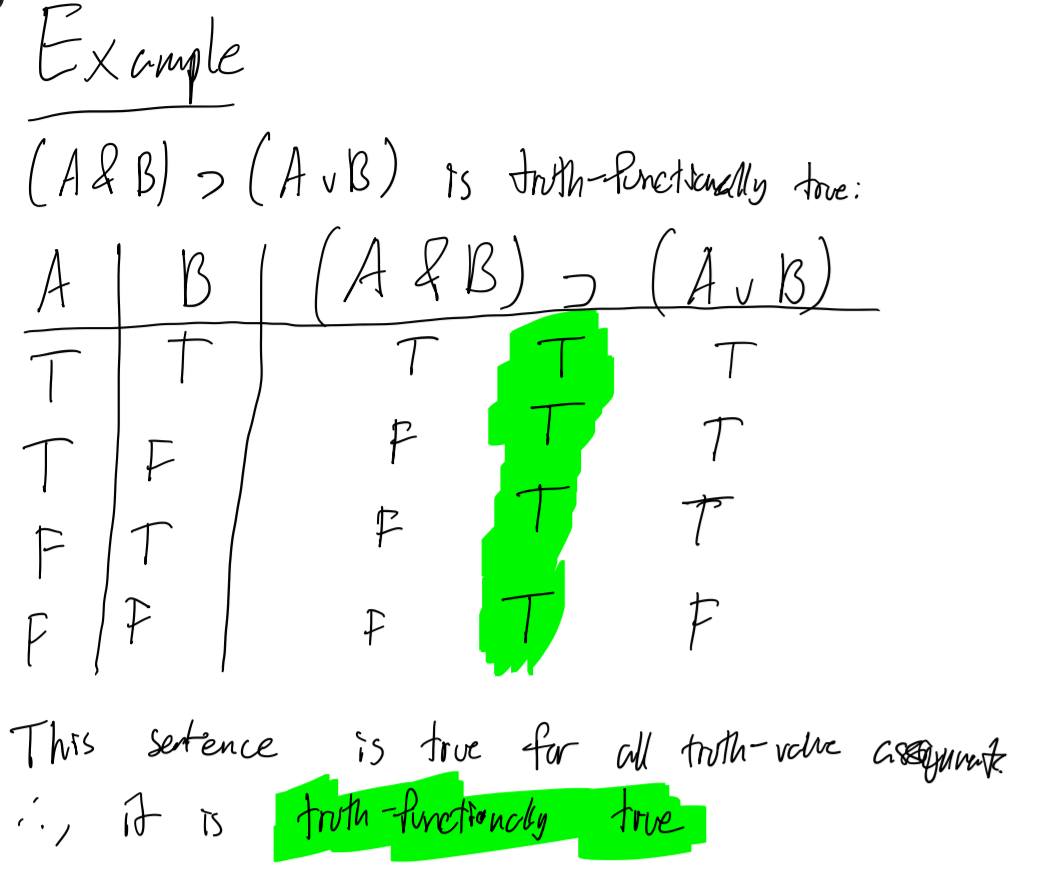 Example
(A & B) ⊃ (A ∨ B) is truth-functionally true:
A B (A & B) ⊃ (A ∨ B)
T T T T T
T F F T T
F T F T T
F F F T F
This sentence is true for all truth-value assignments
∴, it is truth-functionally true